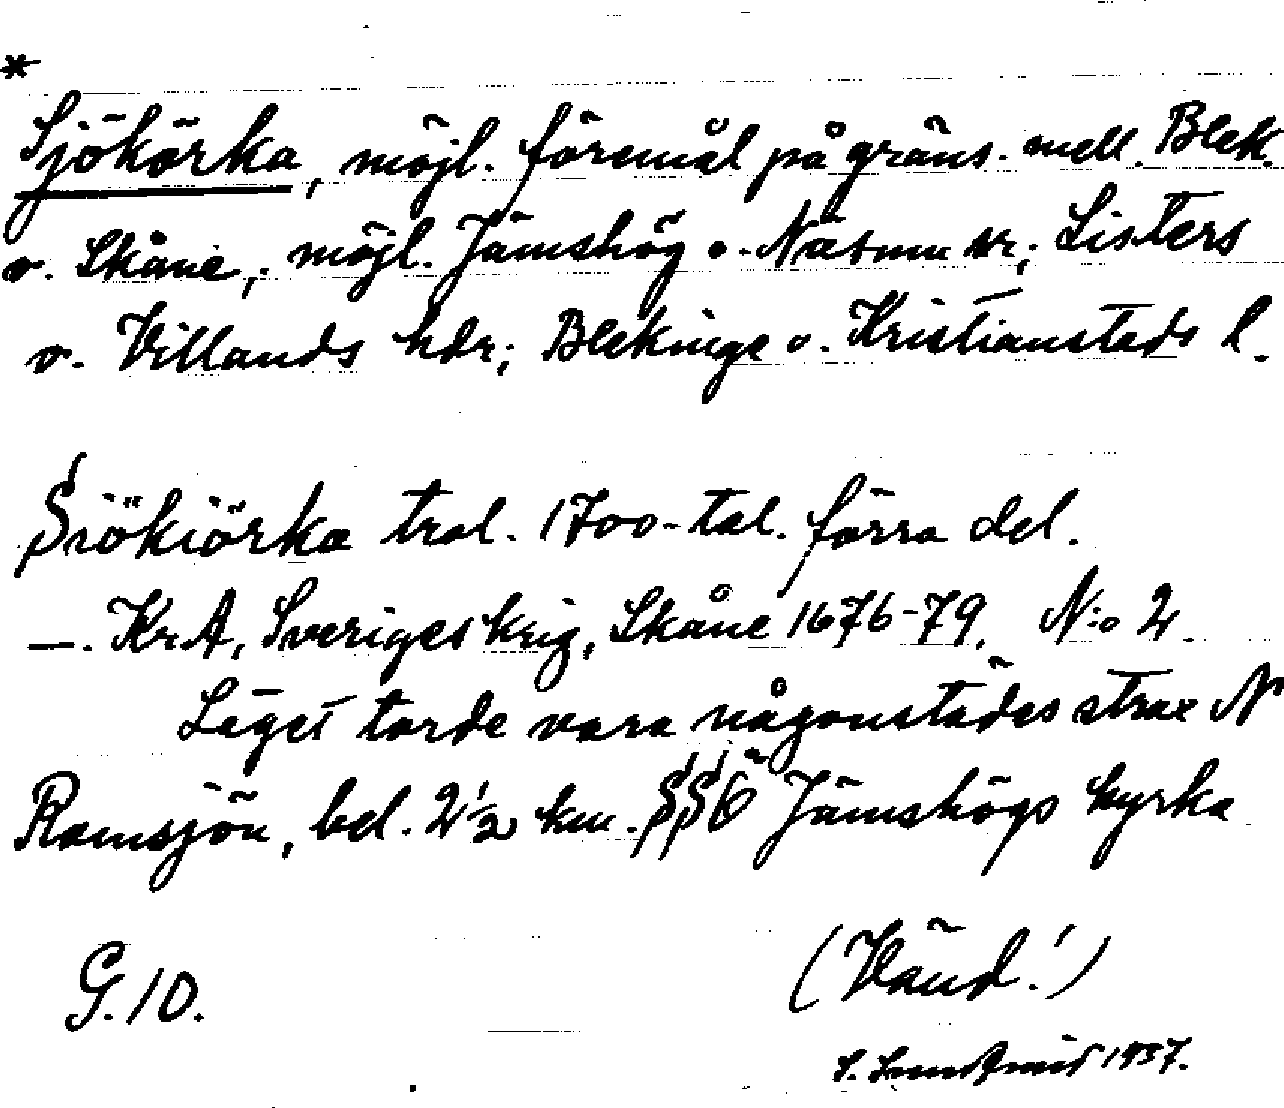 *
Sjökörka, möjl. föremål på gräns. mell. Blek.
o. Skåne, möjl. Jämshög o. Näsum sr; Listers
o. Villands hdr; Blekinge o. Kristianstads l.
Siökiörka trol. 1700-tal. förra del.
—. KrA, Sveriges krig, Skåne 1676-79. N:o 2.
Läget torde vara någonstädes strax N
Ramsjön, bel. 2½ km. SSÖ Jämshögs kyrka
G. 10. (Vänd!)
1937.